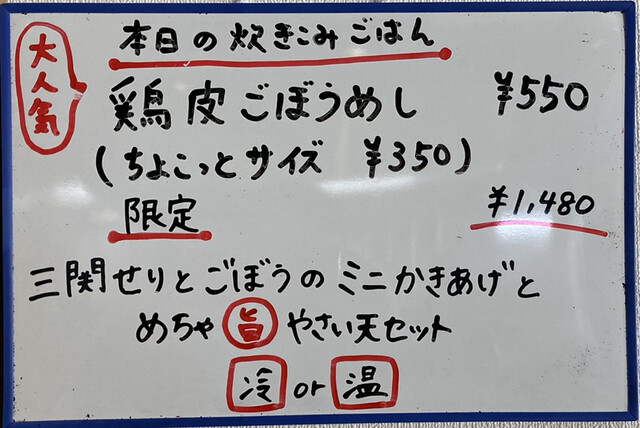 大人気
本日の炊きこみごはん
鶏皮ごぼうめし ¥550
(ちょこっとサイズ ¥350)
限定 ¥1,480
三関せりとごぼうのミニかきあげと
めちゃ旨やさい天セット
冷or温